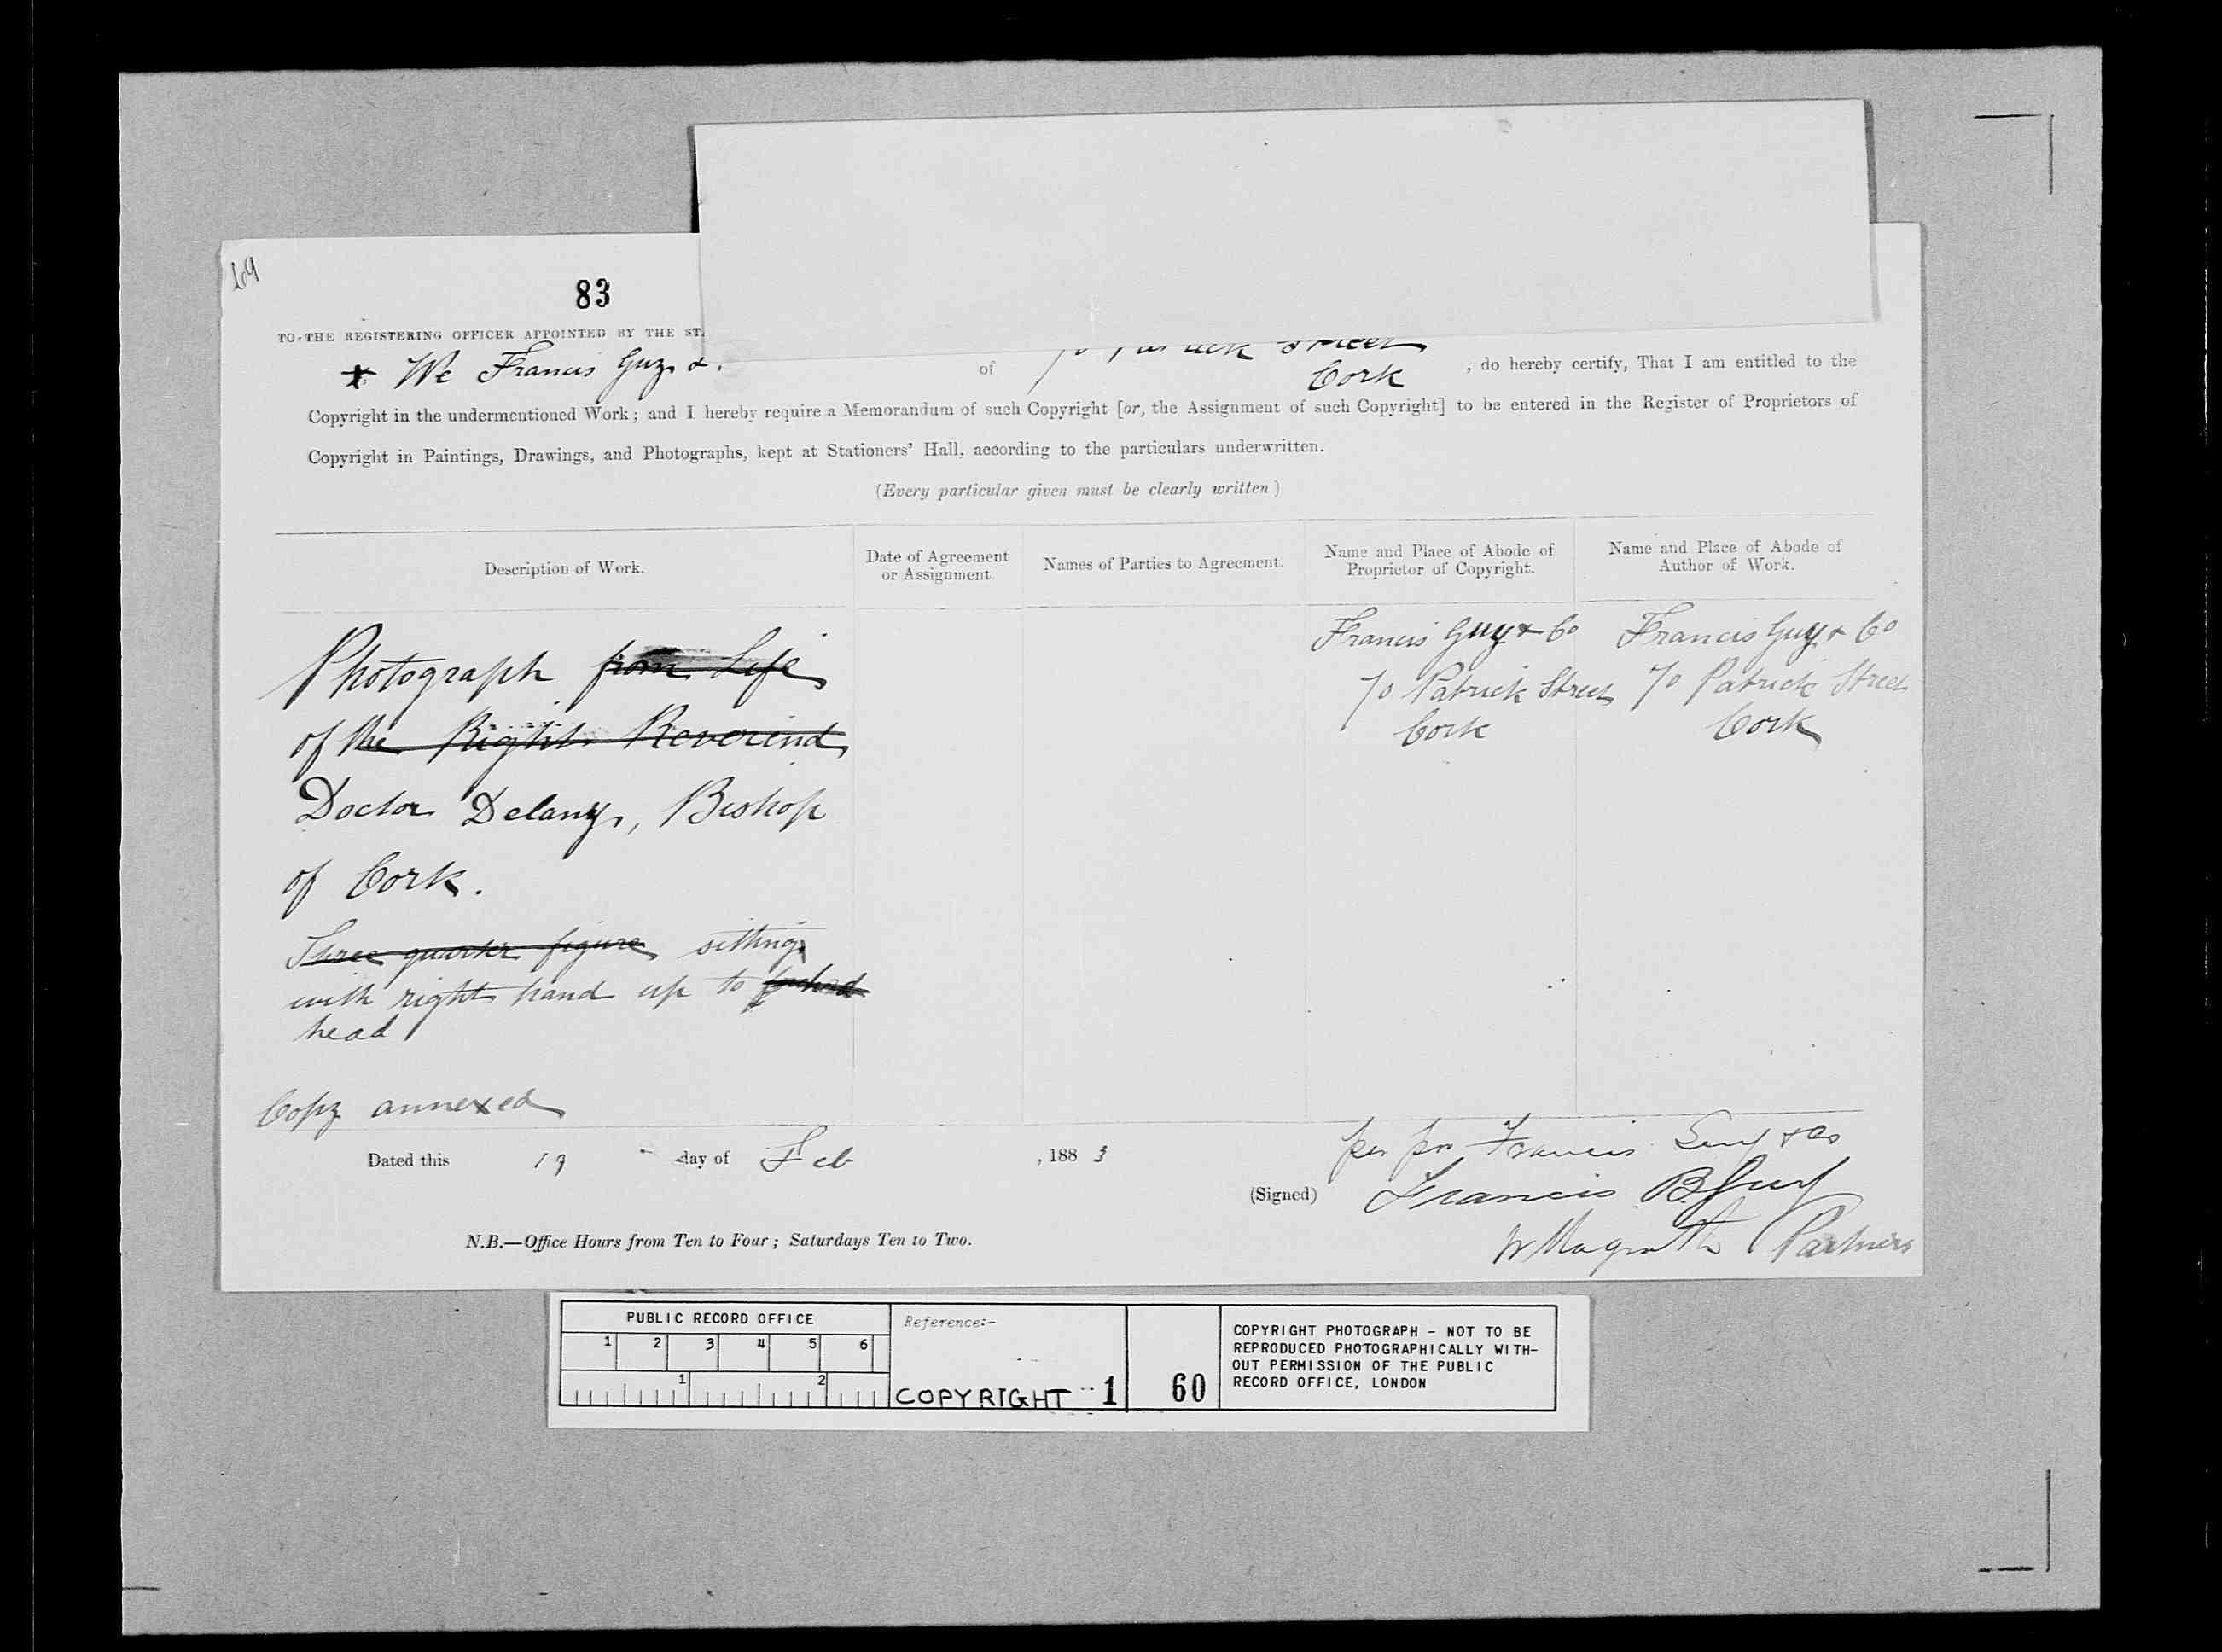 69
83
TO THE REGISTERING OFFICER APPOINTED BY THE ST
We Francis Guy &
of 70 Patrick Street
Cork
, do hereby certify, That I am entitled to the
Copyright in the undermentioned Work; and I hereby require a Memorandum of such Copyright [or, the Assignment of such Copyright] to be entered in the Register of Proprietors of
Copyright in Paintings, Drawings, and Photographs, kept at Stationers' Hall, according to the particulars underwritten.
(Every particular given must be clearly written)
Description of Work.
Date of Agreement
or Assignment
Names of Parties to Agreement.
Name and Place of Abode of
Proprietor of Copyright.
Name and Place of Abode of
Author of Work.
Photograph from Life
of the Right Reverend
Doctor Delany, Bishop
of Cork.
Three quarter figure sitting
with right hand up to forehead
head
Copy annexed
Francis Guy & Co
70 Patrick Street
Cork
Francis Guy & Co
70 Patrick Street
Cork
Dated this 19 day of Feb , 188 3
per pro Francis Guy & Co
(Signed) Francis B Guy
W Magrath Partners
N.B.—Office Hours from Ten to Four; Saturdays Ten to Two.
PUBLIC RECORD OFFICE
1 2 3 4 5 6
1 2
Reference:-
COPYRIGHT 1
60
COPYRIGHT PHOTOGRAPH - NOT TO BE
REPRODUCED PHOTOGRAPHICALLY WITH-
OUT PERMISSION OF THE PUBLIC
RECORD OFFICE, LONDON